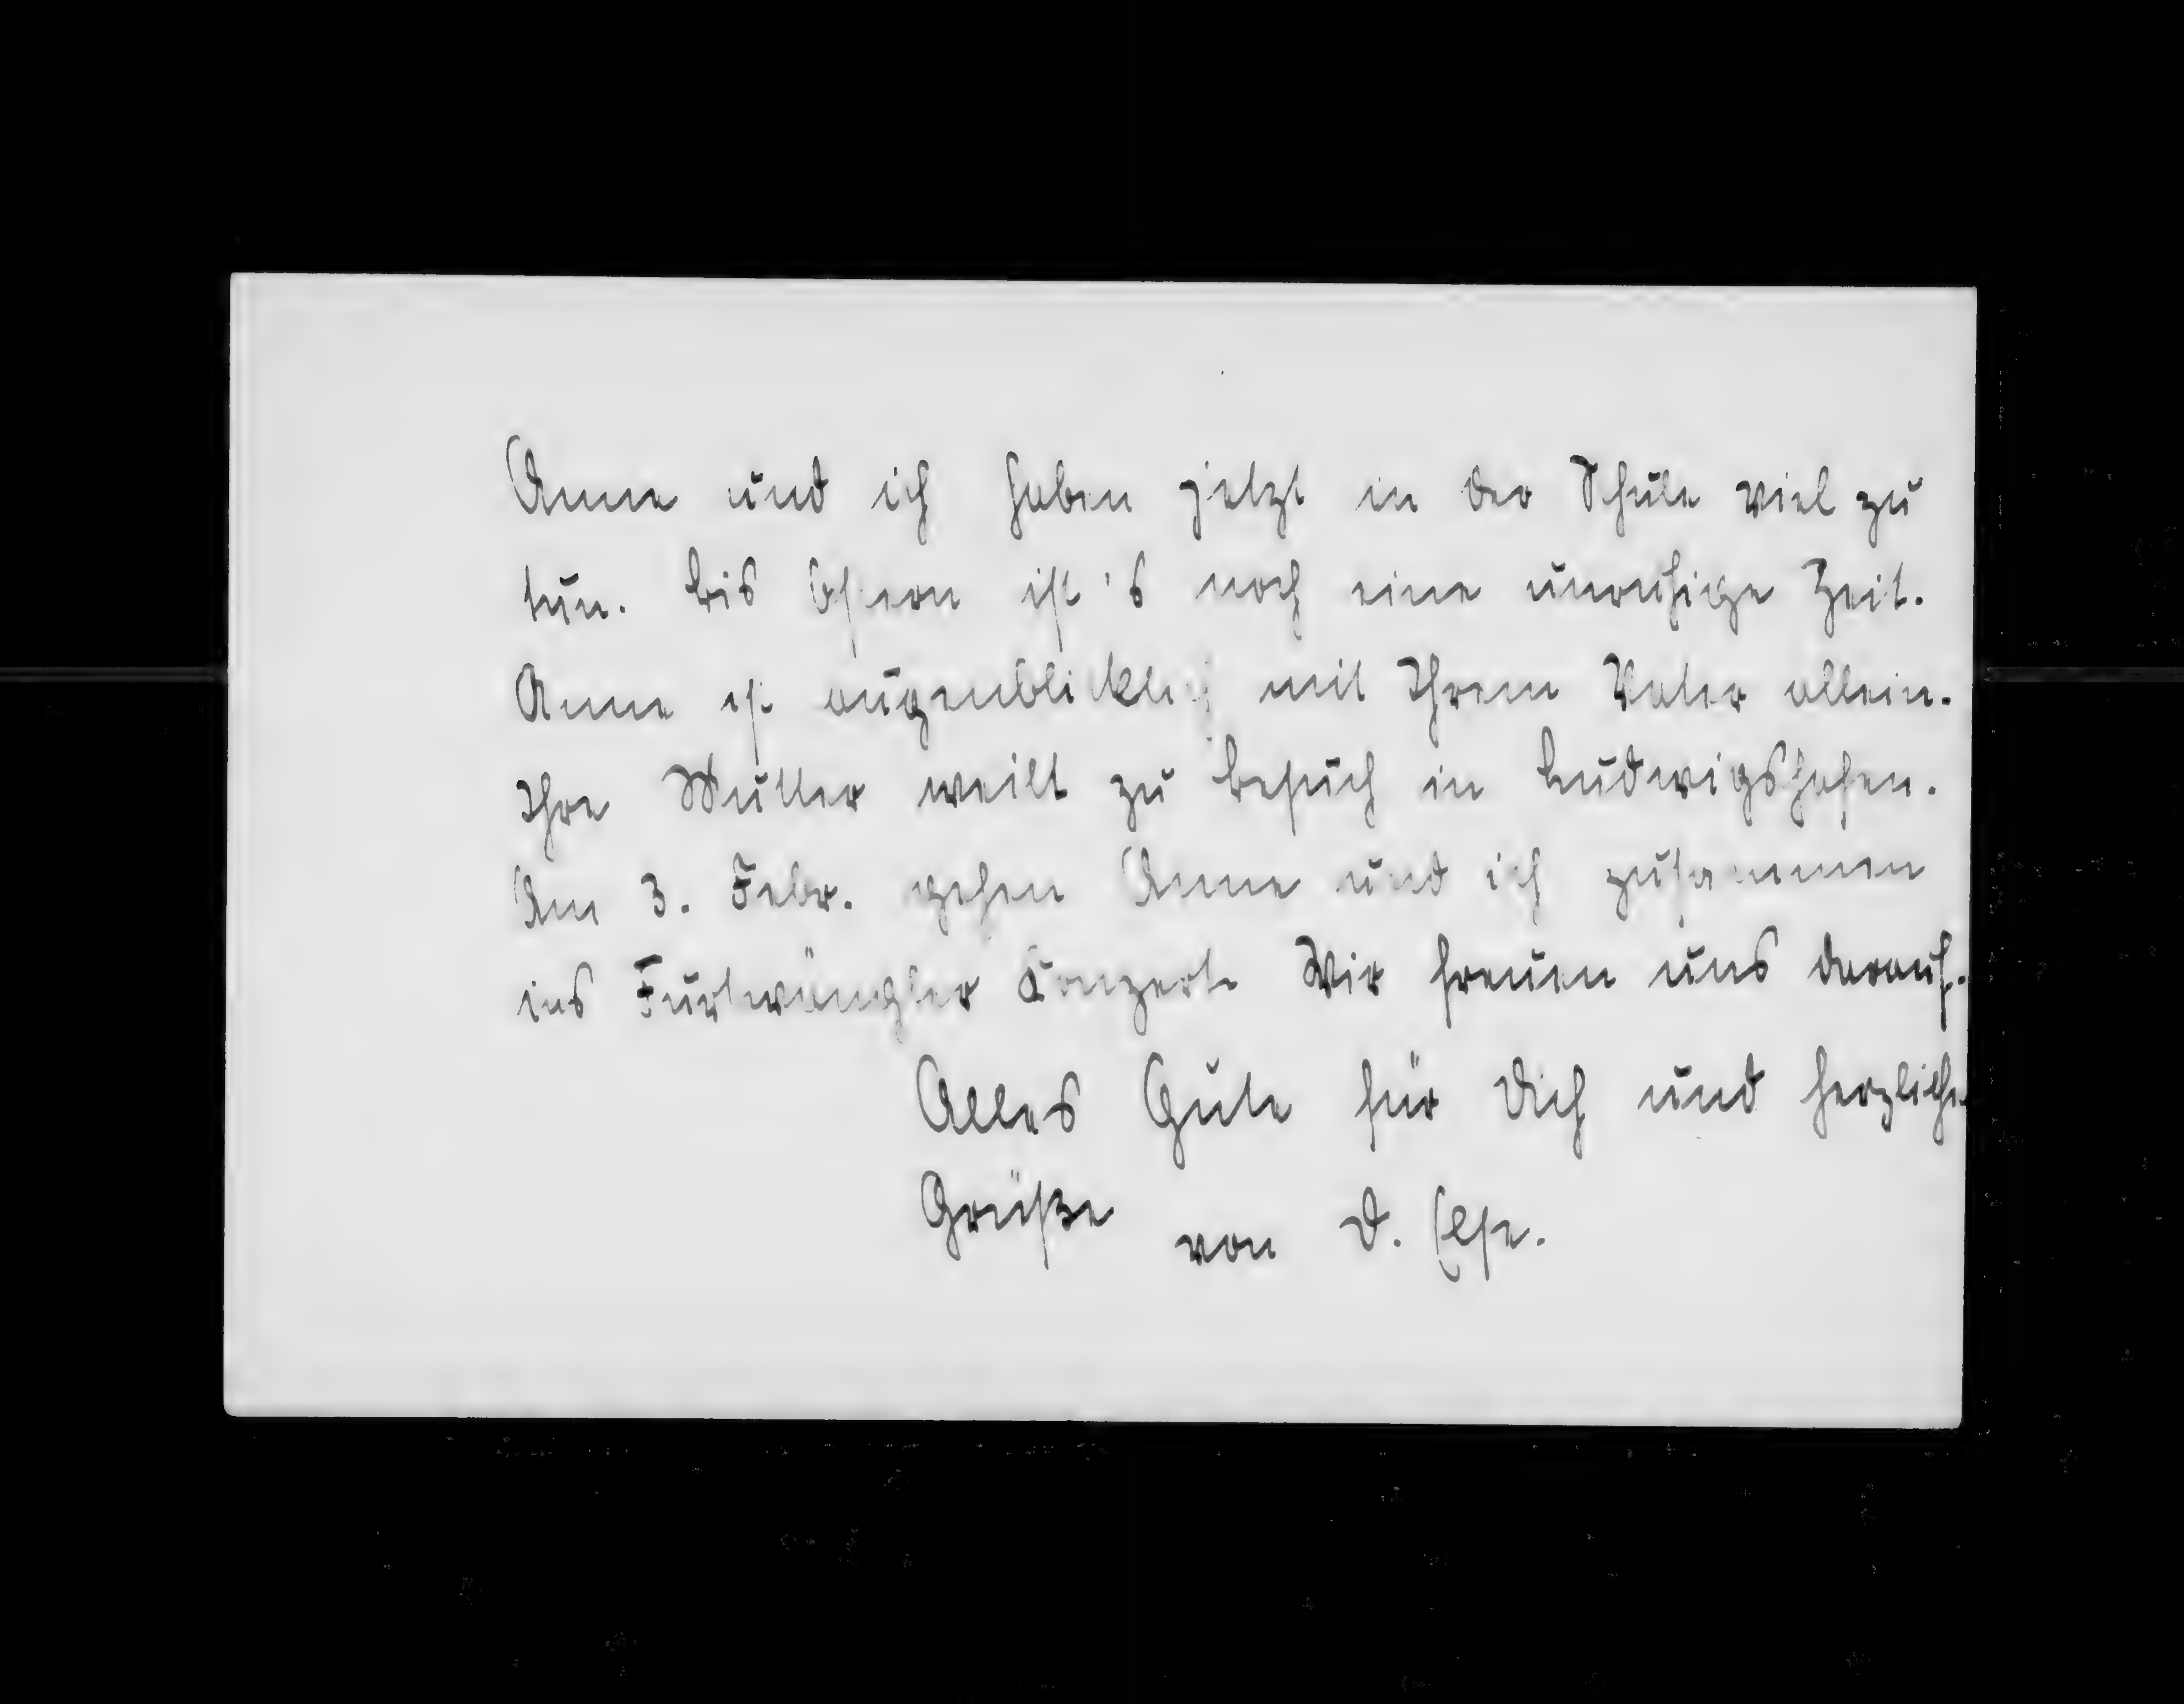 Anne und ich haben jetzt in der Schule viel zu
tun. Bis Ostern ist's noch eine unruhige Zeit.
Anne ist augenblicklich mit Ihrem Vater allein.
Ihre Mutter weilt zu Besuch in Ludwigshafen.
Am 3. Febr. gehen Anne und ich zusammen
ins Furtwängler Konzert. Wir freuen uns darauf.
Alles Gute für Dich und herzliche
Grüße von D. Else.